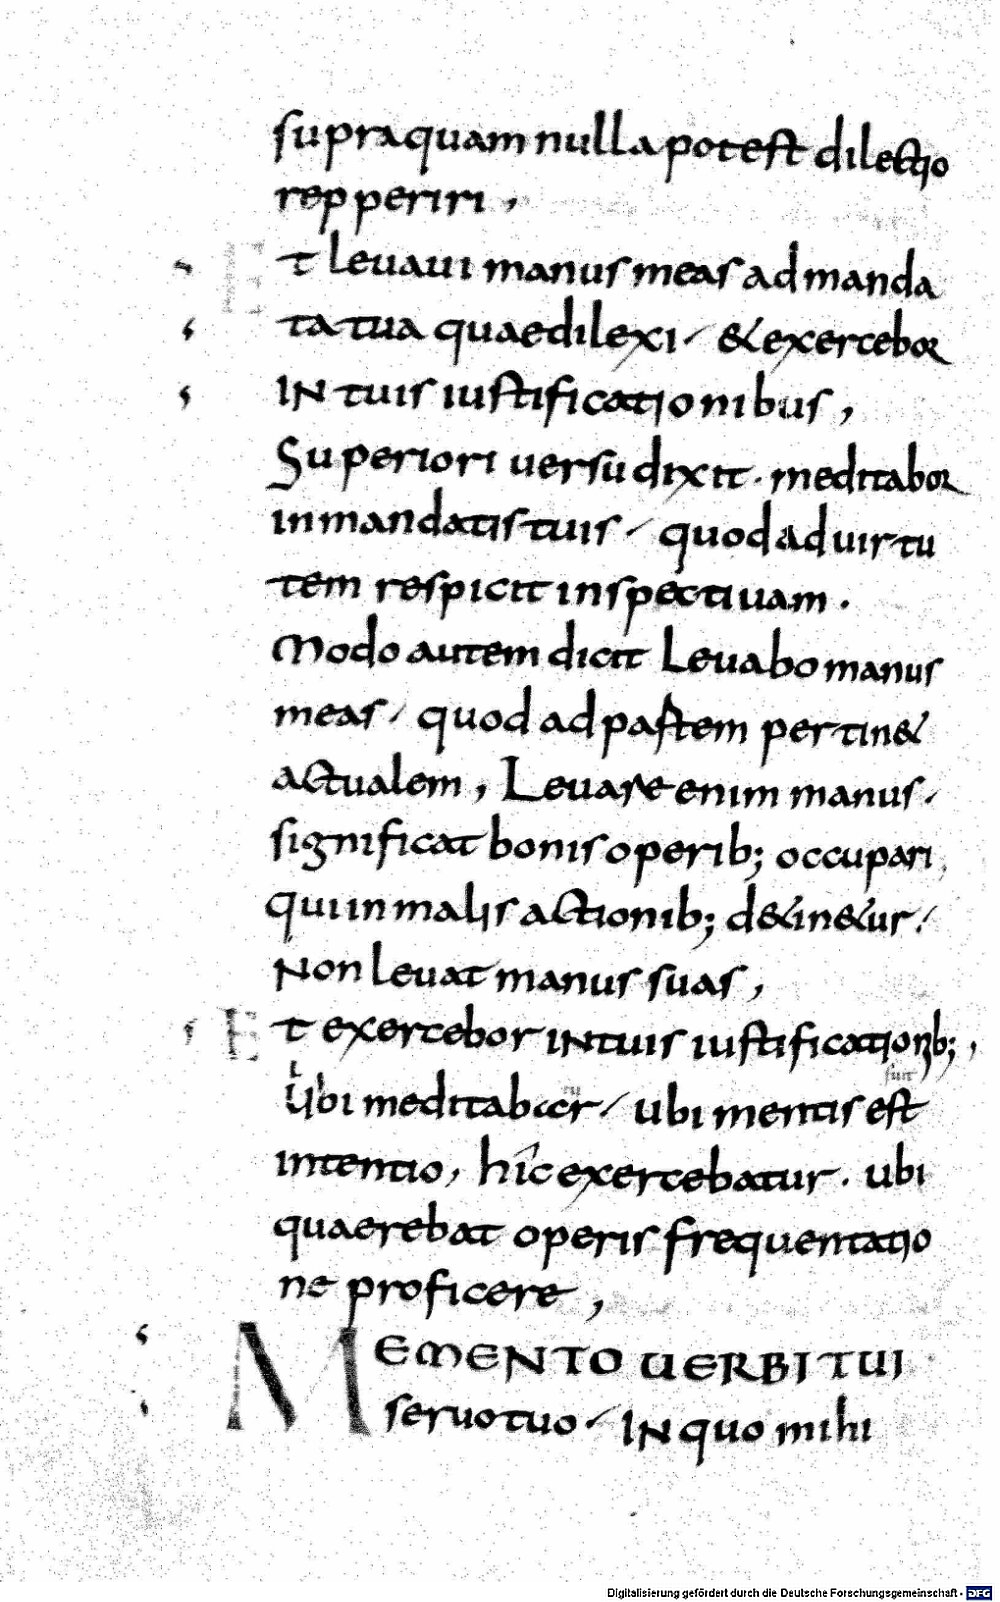 supra quam nulla potest dilectio
repperiri,
Et leuaui manus meas ad manda
ta tua quae dilexi / & exercebor
IN tuis iustificationibus,
Superiori uersu dixit · meditabor
in mandatis tuis / quod ad uirtu
tem respicit inspectiuam ·
Modo autem dicit Leuabo manus
meas / quod ad partem pertin&
actualem, Leuare enim manus ·
significat bonis operib; occupari,
qui in malis actionib; d&in&ur /
Non leuat manus suas,
Et exercebor IN tuis iustificationib;,
fuit
Ubi meditabatur / ubi mentis est
intentio, hîc exercebatur · ubi
quaerebat operis frequentatio
ne proficere,
MEMENTO UERBI TUI
seruo tuo / IN quo mihi
Digitalisierung gefördert durch die Deutsche Forschungsgemeinschaft - DFG